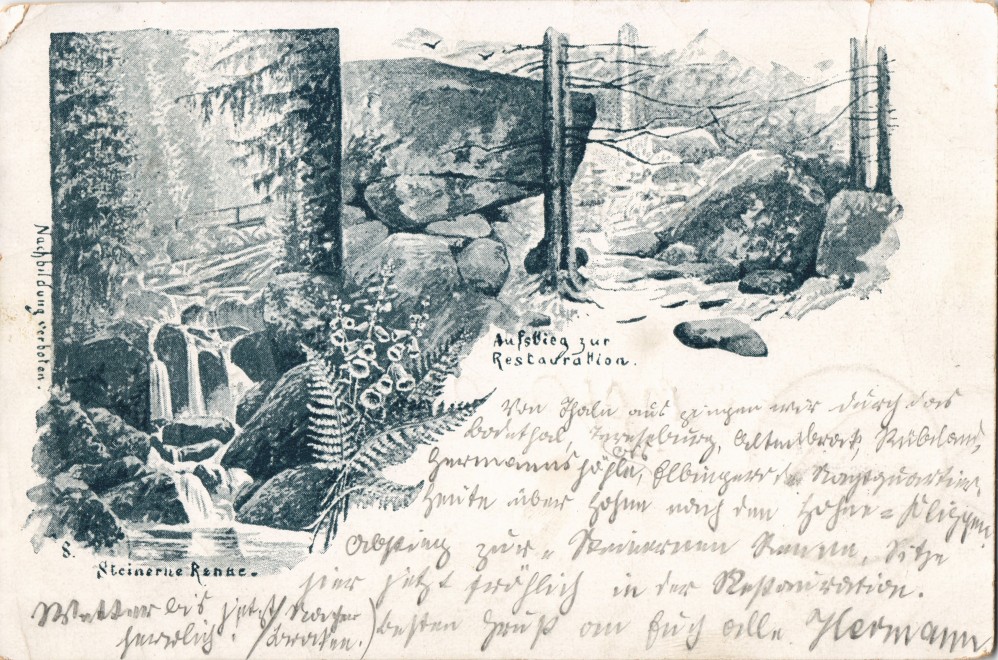 Nachbildung verboten.
Aufstieg zur
Restauration.
S.
Steinerne Renne.
Von Thale aus gingen wir durch das
Bodethal, Treseburg, Altenbrak, Rübeland,
Hermannshöhle, Elbingerode Nachtquartier,
Heute über Hohne nach den Hohne=Klippen
Abstieg zur „Steinernen Renne, Sitze
hier jetzt fröhlich in der Restauration.
Wetter bis jetzt
herrlich.
besten Gruß an Euch alle. Hermann